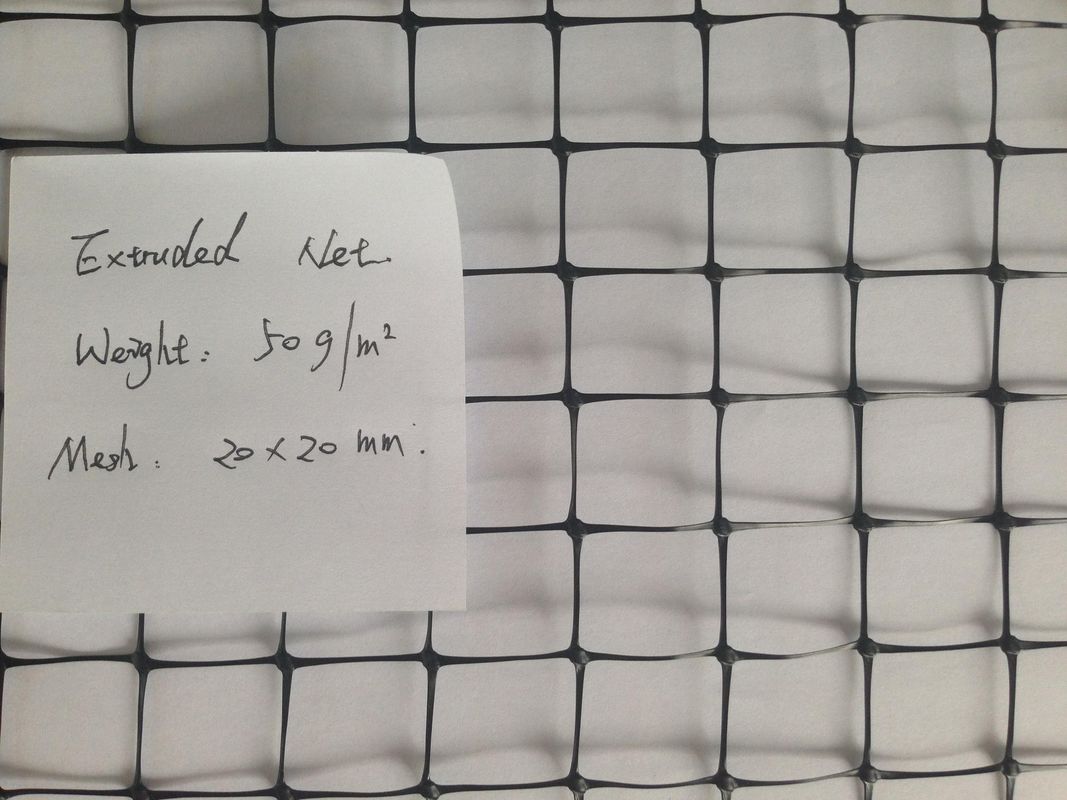 Extruded Net.
Weight: 50 g/m²
Mesh: 20 x 20 mm.